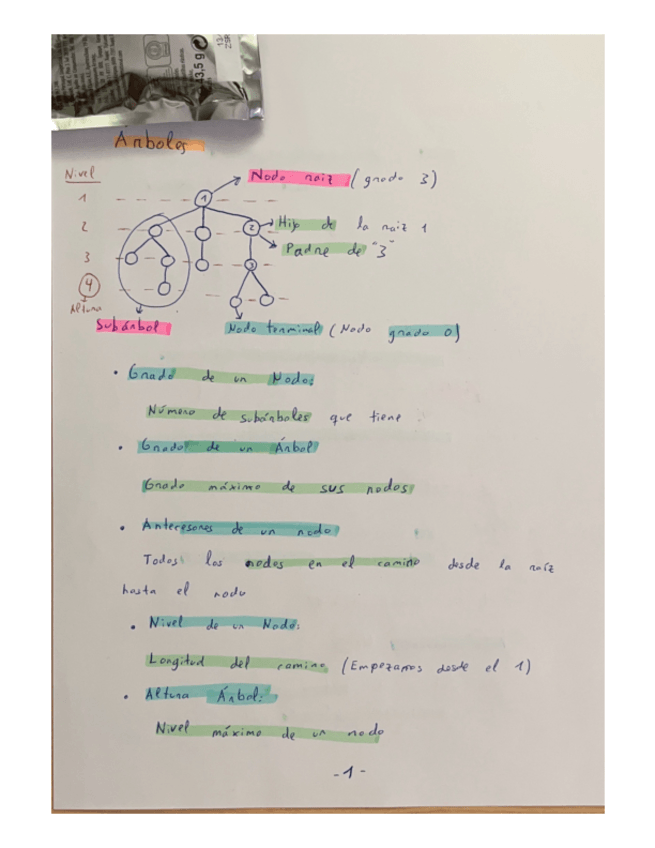 43,5 g
Árboles
Nivel
Nodo raiz (grado 3)
1
1
2
2
Hijo de la raiz 1
Padre de "3"
3
3
4
Altura
Subárbol
Nodo terminal (Nodo grado 0)
• Grado de un Nodo:
Número de subárboles que tiene
• Grado de un Árbol
Grado máximo de sus nodos
• Anteresores de un nodo
Todos los nodos en el camino desde la raíz
hasta el nodo
• Nivel de un Nodo:
Longitud del camino (Empezamos desde el 1)
• Altura Árbol:
Nivel máximo de un nodo
-1-